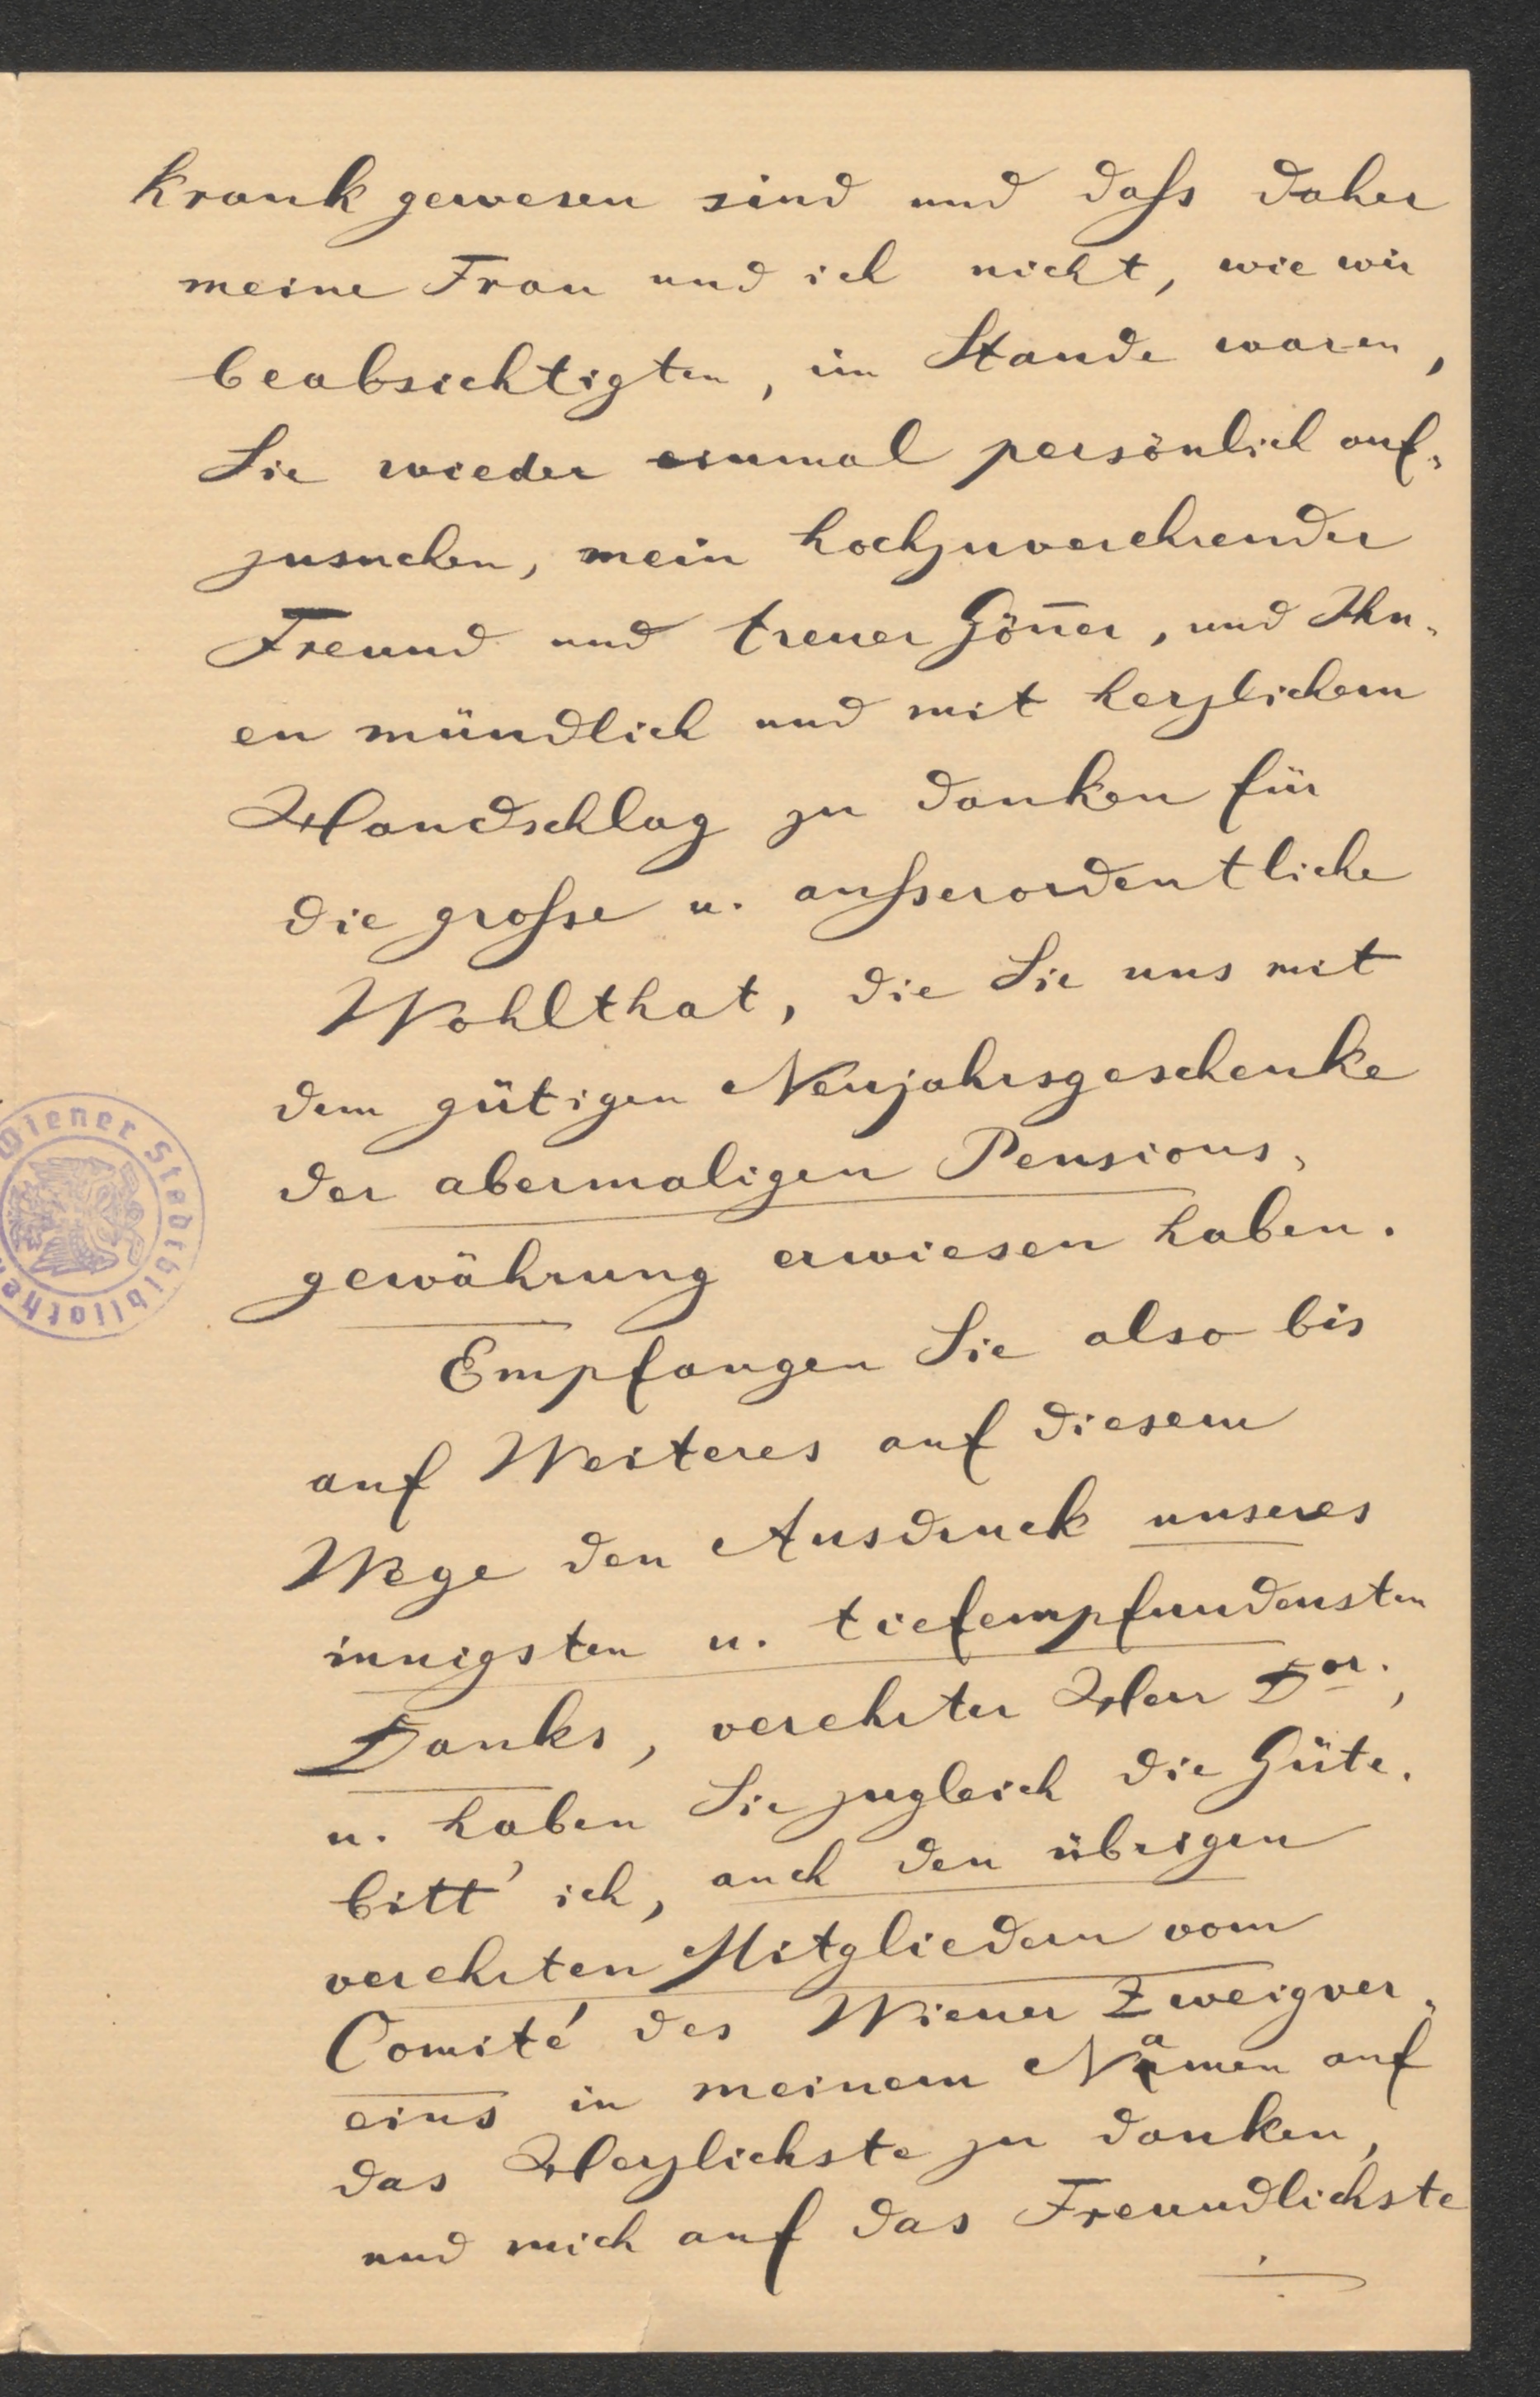 krank gewesen sind und daſs daher
meine Frau und ich nicht, wie wir
beabsichtigten, im Stande waren,
Sie wieder einmal persönlich auf-
zusuchen, mein hochzuverehrender
Freund und treuer Gön̄er, und Ihn-
en mündlich und mit herzlichem
Handschlag zu danken für
die groſse u. auſserordentliche
Wohlthat, die Sie uns mit
dem gütigen Neujahrsgeschenke
der abermaligen Pensions-
gewährung erwiesen haben.
Empfangen Sie also bis
auf Weiteres auf diesem
Wege den Ausdruck unseres
innigsten u. tiefempfundensten
Danks, verehrter Herr Dor.,
u. haben Sie zugleich die Güte,
bitt' ich, auch den übrigen
verehrten Mitgliedern vom
Comité des Wiener Zweigver-
eins in meinem Namen auf
das Herzlichste zu danken,
und mich auf das Freundlichste
Wiener Stadtbibliothek